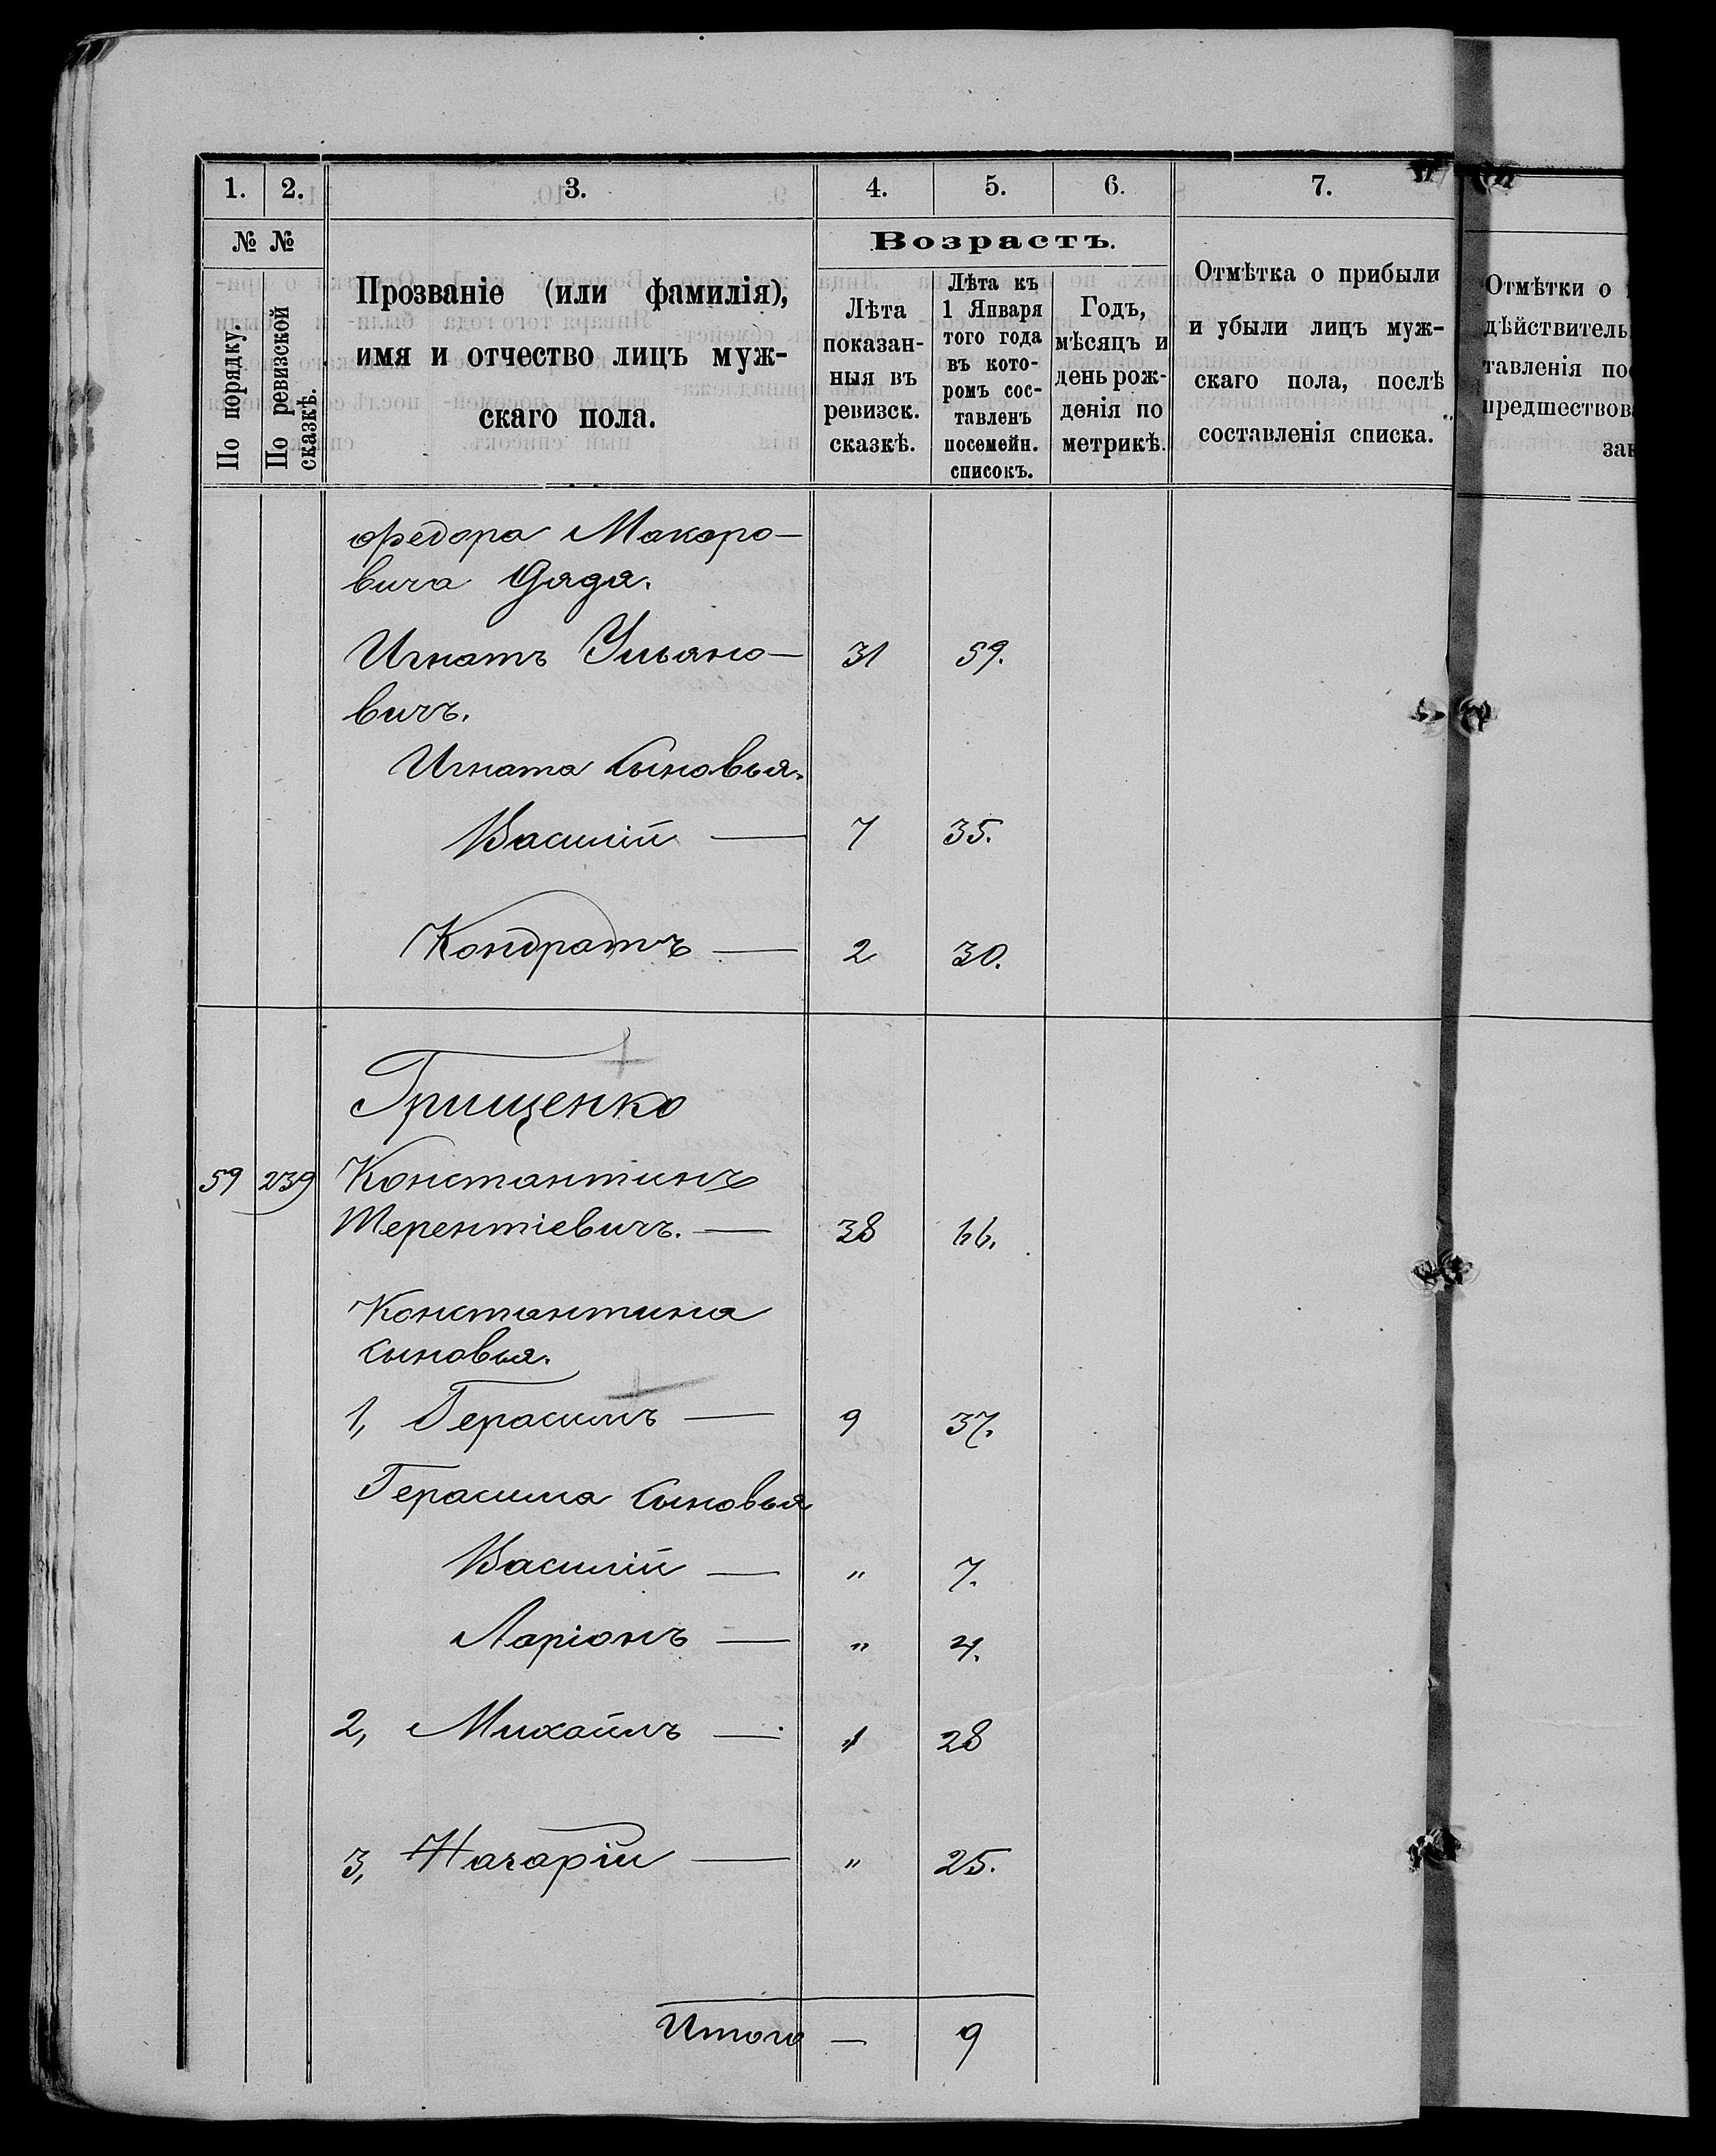 1. 2. 3. 4. 5. 6. 7.
№ №
По порядку.
По ревизской сказкѣ.
Прозваніе (или фамилія),
имя и отчество лицъ муж-
скаго пола.
Возрастъ.
Лѣта
показан-
ныя въ
ревизск.
сказкѣ.
Лѣта къ
1 Января
того года
въ кото-
ромъ сос-
тавленъ
посемейн.
списокъ.
Годъ,
мѣсяцъ и
день рож-
денія по
метрикѣ.
Отмѣтка о прибыли
и убыли лицъ муж-
скаго пола, послѣ
составленія списка.
Отмѣтки о
дѣйствитель
тавленія пос
предшествова
зак
Федора Макаро-
вича Дядя.
Игнатъ Ульяно- 31 59.
вичъ.
Игната сыновья.
Василій — 7 35.
Кондратъ — 2 30.
Грищенко
59 239 Константинъ
Терентіевичъ. — 38 66.
Константина
сыновья.
1, Герасимъ — 9 37.
Герасима сыновья
Василій — " 7.
Ларіонъ — " 4.
2, Михаилъ — 28
3, Назарій — " 25.
Итого — 9